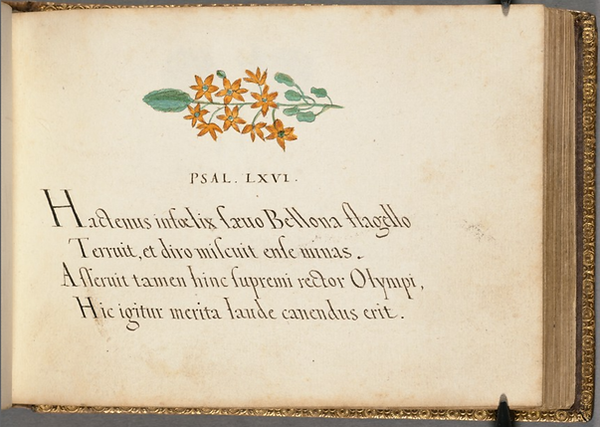 PSAL. LXVI.
Hactenus infœlix ſæuo Bellona flagello
Terruit, et diro miſcuit enſe minas.
Aſſeruit tamen hinc ſupremi rector Olympi,
Hic igitur merita laude canendus erit.